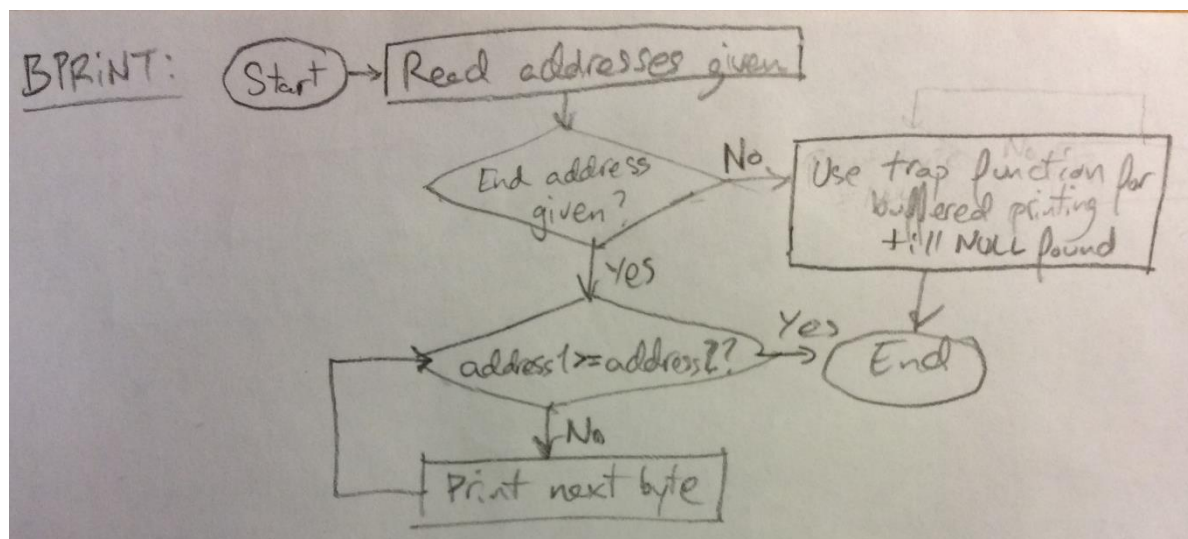 BPRINT:
Start
Read addresses given
End address
given?
No
Use trap function for
buffered printing
till NULL found
Yes
address1>=address2?
Yes
End
No
Print next byte